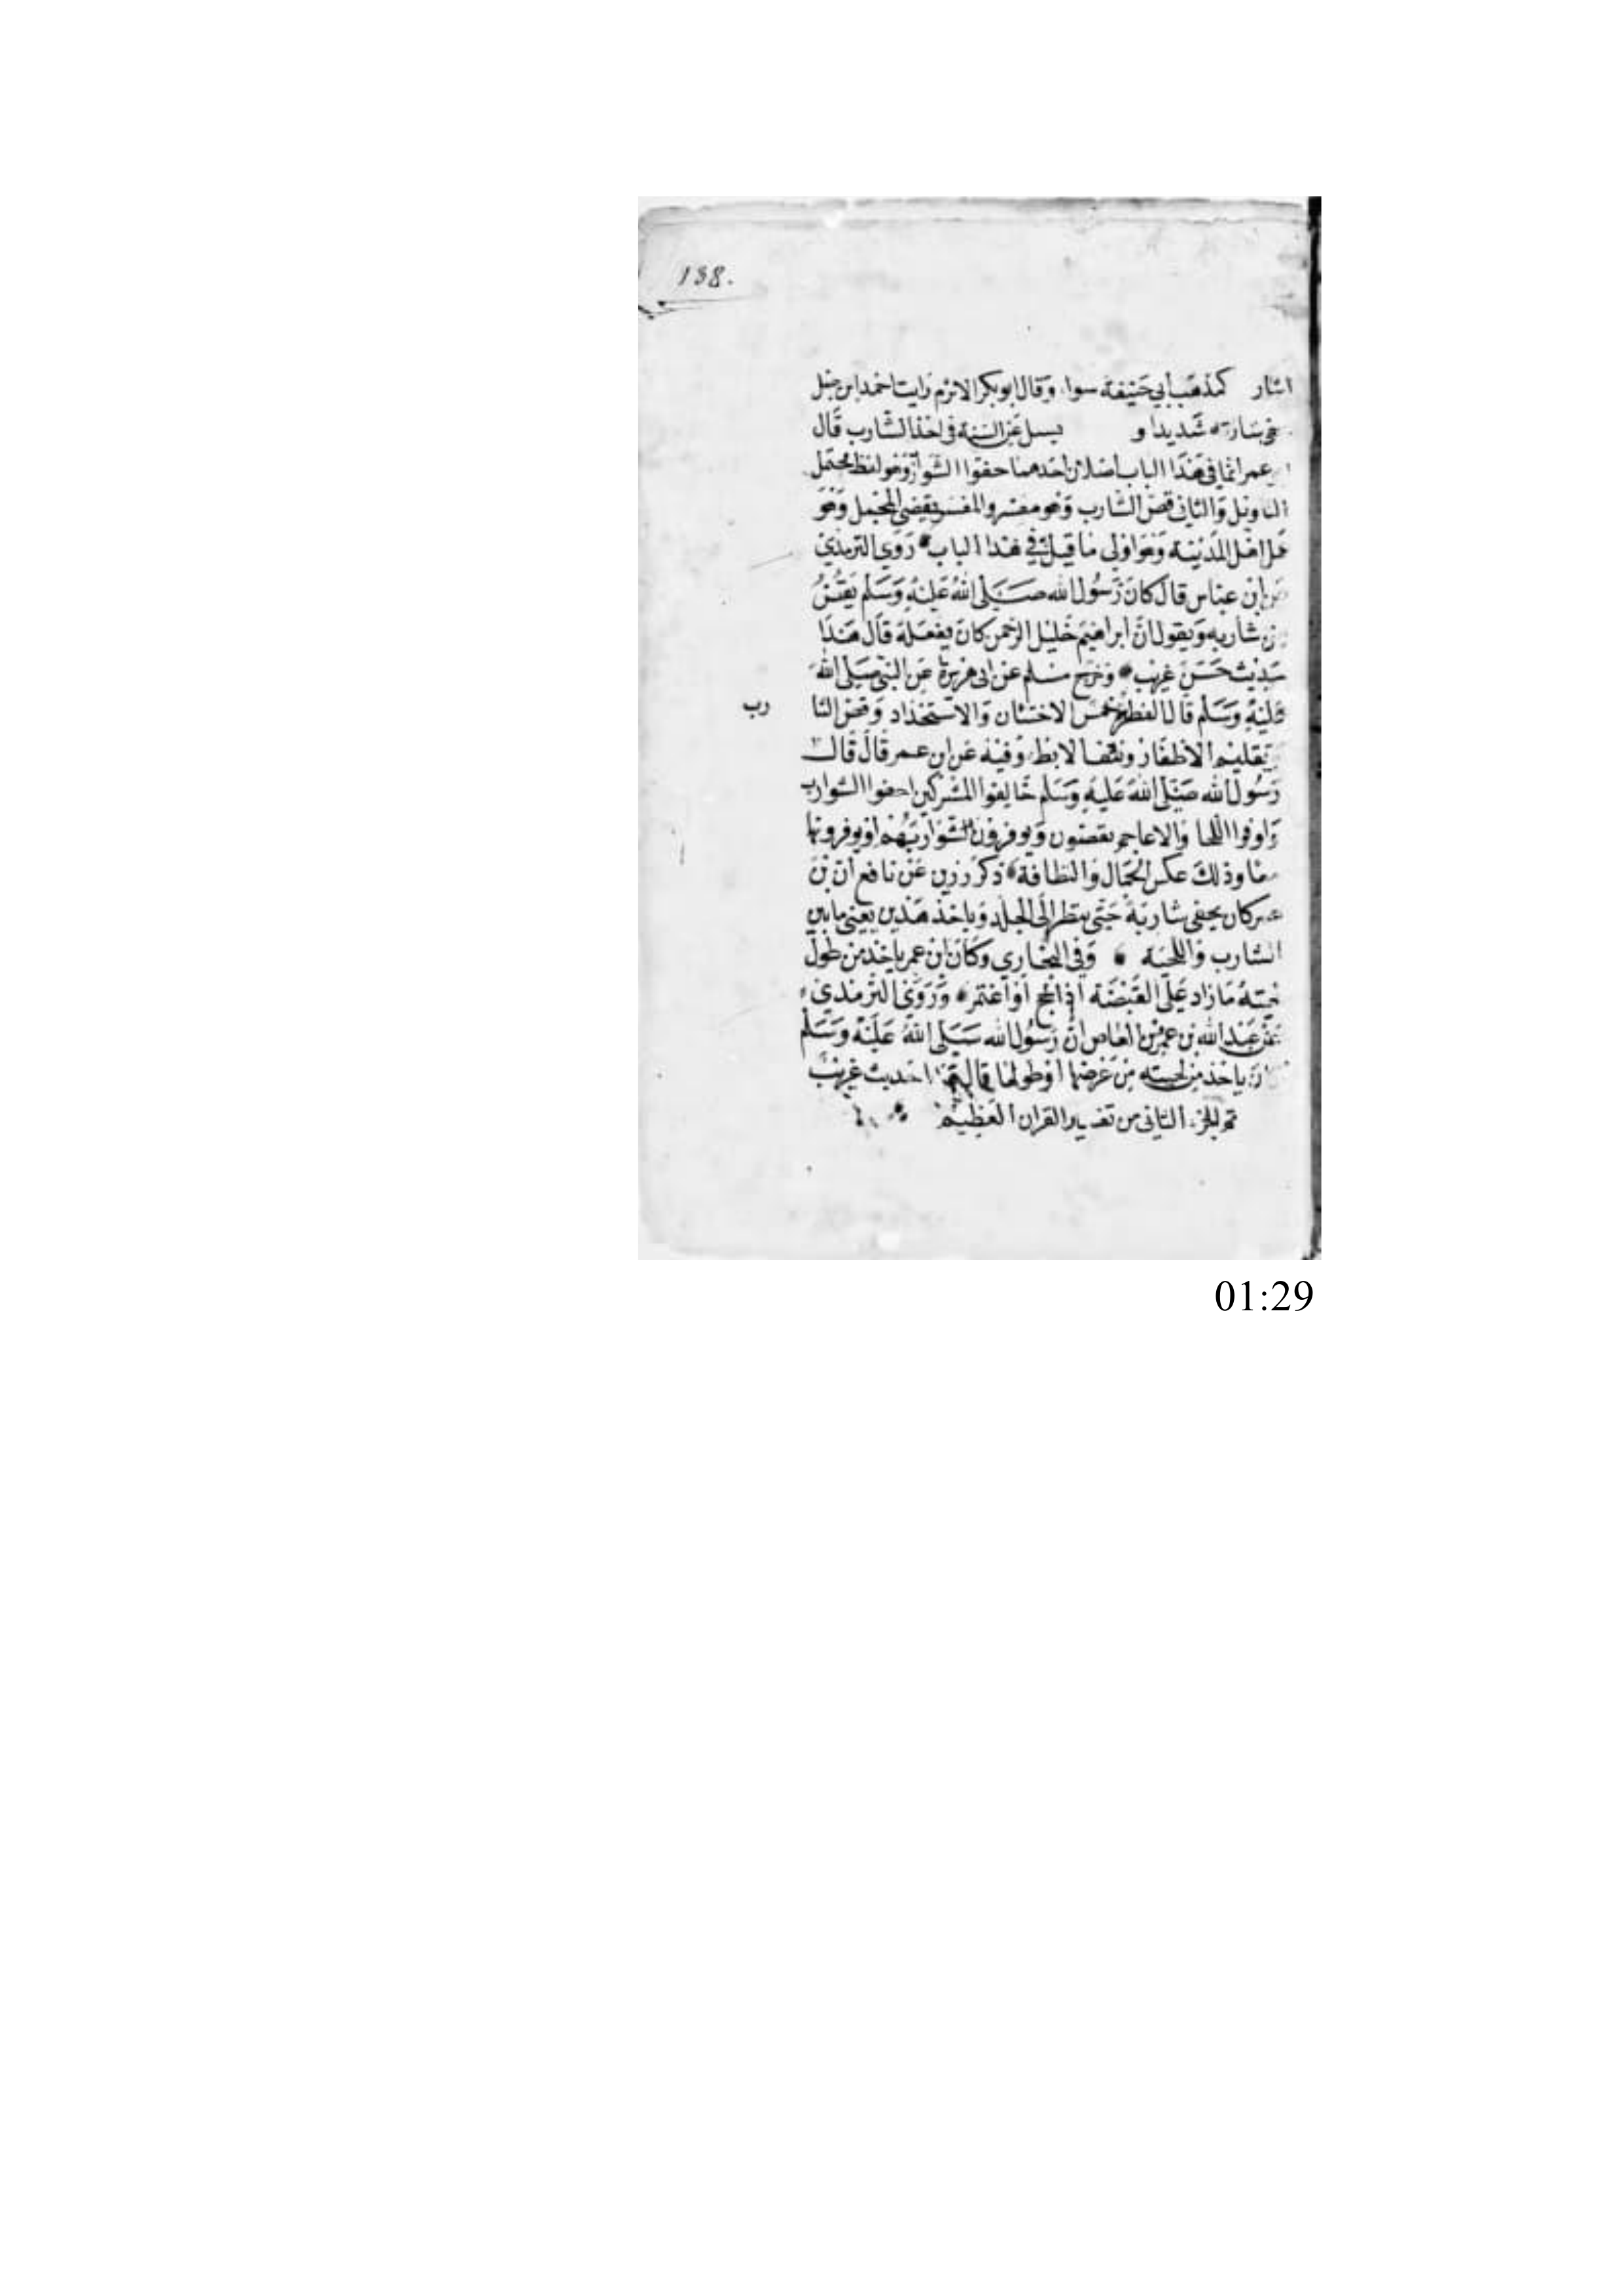 138.
الشار كمذهب أبي حنيفة سوا، وقال ابو بكر الاثرم رايت احمد ابن حنبل
شاربه شديدا و يسل عن السنة في اخذ الشارب قال
عمر انما في هذا الباب اصلان احدهما احفوا الشوارب وهو لفظ محتمل
التاويل والثاني قص الشارب وهو مفسر والمفسر يقضي المجمل وهو
عمل اهل المدينة وهو اولى ما قيل في هذا الباب روي الترمذي
عن ابن عباس قال كان رسول الله صلى الله عليه وسلم يقص
من شاربه ويقول ان ابراهيم خليل الرحمن كان يفعله قال هذا
حديث حسن غريب وخرج مسلم عن ابي هريرة عن النبي صلى الله
عليه وسلم قال الفطرة خمس الاختتان والاستحداد وقص الشا رب
وتقليم الاظفار ونتف الابط، وفيه عن ابن عمر قال قال
رسول الله صلى الله عليه وسلم خالفوا المشركين احفوا الشوارب
واوفوا اللحا والاعاجم يقصون ويوفرون شواربهم او يوفرونها
معا وذلك عكس الجمال والنظافة ذكر رزين عن نافع ان بن
عمر كان يحفي شاربه حتى ينظر الى الجلد وياخذ هذين يعني ما بين
الشارب واللحية وفي البخاري وكان ابن عمر ياخذ من طول
لحيته ما زاد على القبضة اذا حج او اعتمر وروى الترمذي
عن عبد الله بن عمرو بن العاص ان رسول الله صلى الله عليه وسلم
كان ياخذ من لحيته من عرضها او طولها قال حديث غريب
تم الجزء الثاني من تفسير القران العظيم
01:29